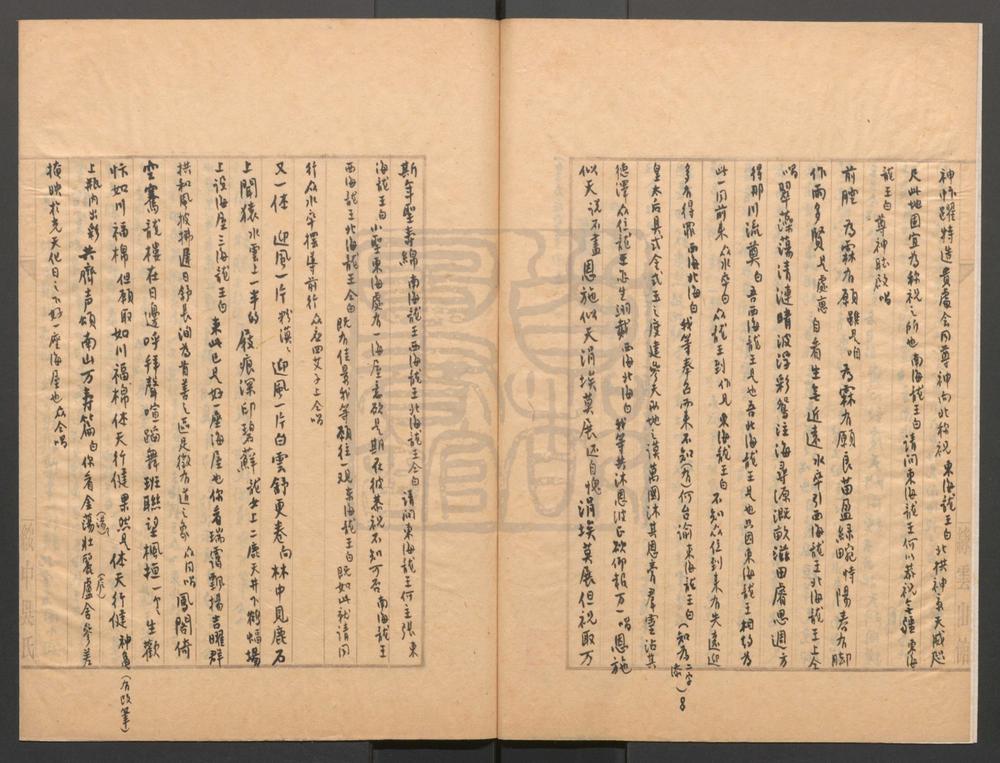 神怀踴躍特造貴處会同尊神向北称祝 東海龍王白 北拱神京天咸
尺此地固宜為称祝之所也 南海龍王白 請问東海龍王何以恭祝無疆 東海
龍王白 尊神听啟唱
前腔 為霖有願雖是咱 為霖有願良苗盈綠畹 恃陽春有脚
作雨多賢只處惠 自看生生近遠 水卒引西海龍王北海龍王上仝
唱 翠藻蕩清漣晴波浮彩鴛注海尋源溉畝滋田膚恩週方
得那川流莫 白 吾西海龍王是也吾北海龍王是也只因東海龍王相約为
此一同前来 众水卒白 众龍王到 作見 東海龍王白 不知众位到来有失遠迎
多有得罪 西海北海白 我等奉召而来不知(有)何台諭 東海龍王白 (知为二字添) 8
皇太后具式仝式玉之度建参天公地之謨萬国沐其恩膏羣靈沾其
德澤众位龍王忝生翊戴 西海北海白 我等共沐恩波正欲仰报万一 唱 恩施
似天 说不盡恩施似天涓埃莫展还自愧 涓埃莫展但祝取万
斯年聖寿綿 南海龍王西海龍王北海龍王仝白 請问東海龍王何主張 東
海龍王白 小聖東海處有一海屋意欲是期在彼恭祝不知可否 南海龍王
西海龍王北海龍王仝白 既有佳景我等願往一观 東海龍王白 既如此就請同
行 众水卒擺導前行 众应 四女子上仝唱
又一体 迎風一片 我漠漠 迎風一片白雲舒更卷向林中見鹿石
上聞猿水雲上一半的 屐痕深印碧蘚 龍女上二层天井下鶴蝠場
上设海屋三海龍王白 来此已是好一座海屋也你看瑞靄飄揚吉曜群
拱和風披拂遲日舒長洵为首善之區足徵有道之象 众同唱 鳳閣倚
雲騫龍樓在日邊呼拜聲喧蹈舞班聯望楓垣一个个生歡
忭如川福棉 但願取如川福棉体天行健 果然是体天行健 神亀(有改筆)
上瓶内出彩 共齊声頌南山万寿篇 白 你看金蕩壯麗廬舍參差
掩映於光天化日之下好一座海屋也 众仝唱